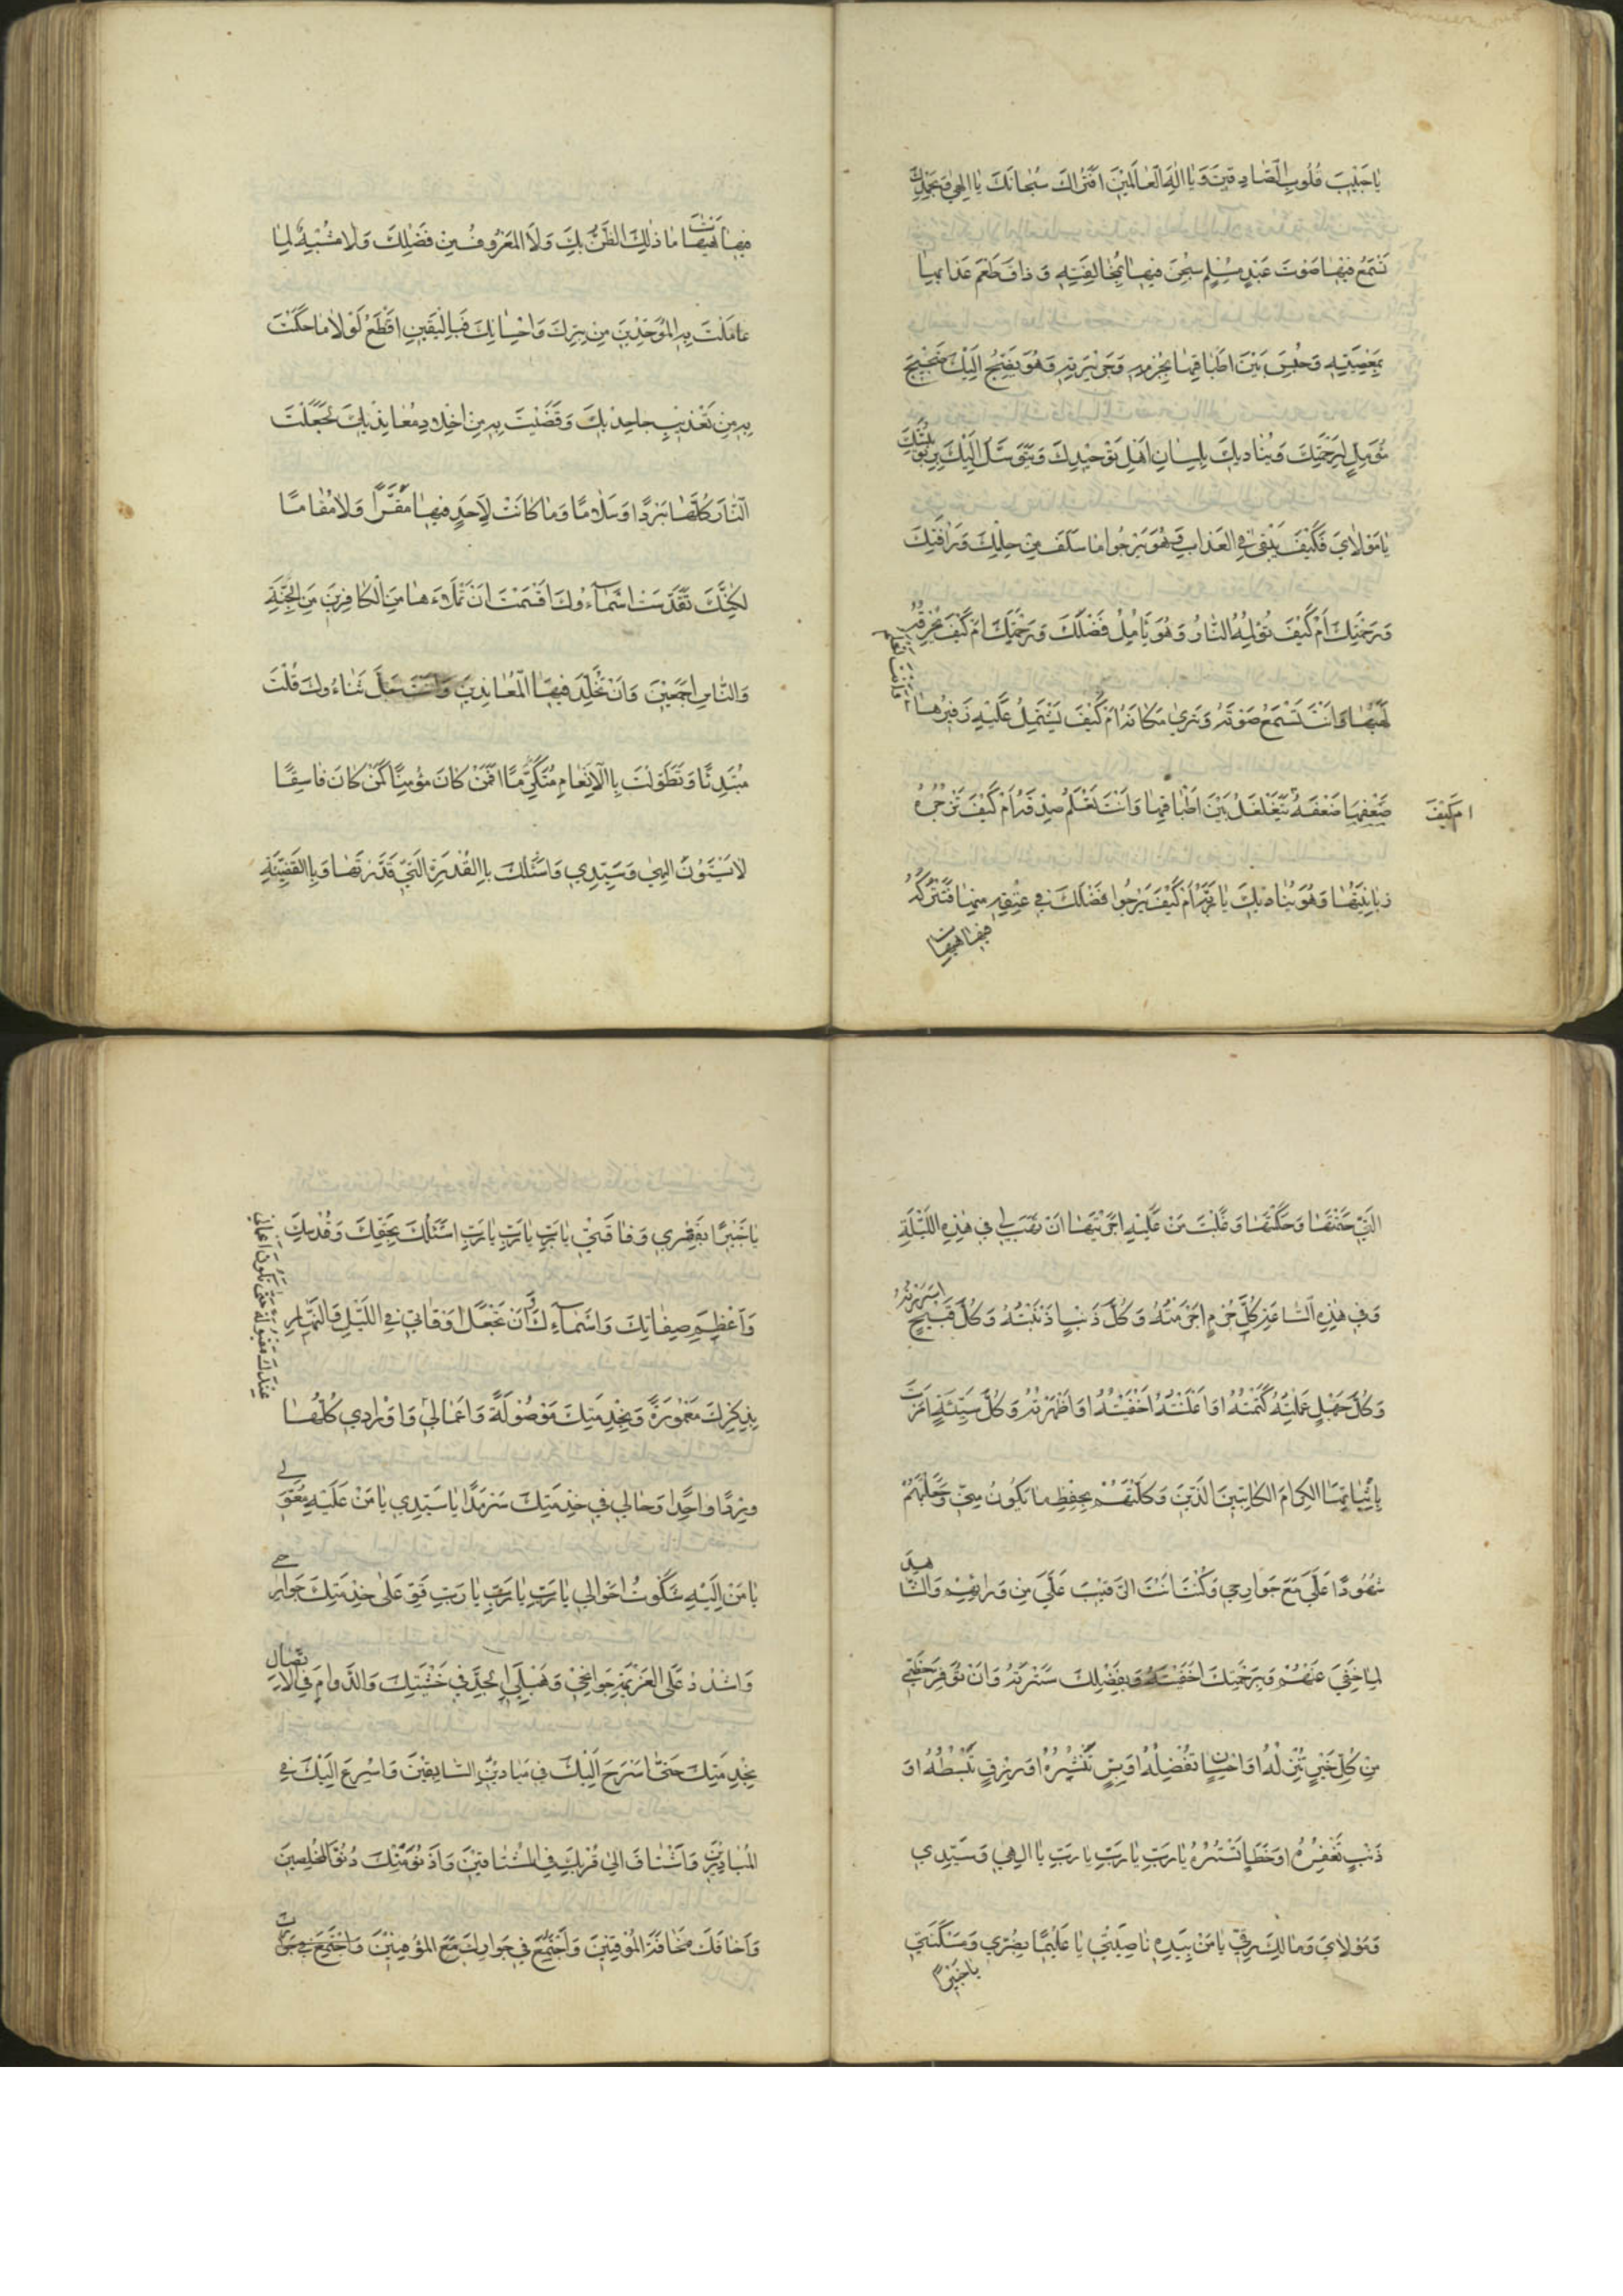 يَا حَبِيبَ قُلُوبِ الصَّادِقِينَ وَ يَا اِلٰهَ الْعَالَمِينَ اَفَتُرَاكَ سُبْحَانَكَ يَا اِلٰهِي وَ بِحَمْدِكَ
تَسْمَعُ فِيهَا صَوْتَ عَبْدٍ مُسْلِمٍ سُجِنَ فِيهَا بِمُخَالَفَتِهِ وَ ذَاقَ طَعْمَ عَذَابِهَا
بِمَعْصِيَتِهِ وَ حُبِسَ بَيْنَ اَطْبَاقِهَا بِجُرْمِهِ وَ جَرِيرَتِهِ وَ هُوَ يَضِجُّ اِلَيْكَ ضَجِيجَ
مُؤَمِّلٍ لِرَحْمَتِكَ وَ يُنَادِيكَ بِلِسَانِ اَهْلِ تَوْحِيدِكَ وَ يَتَوَسَّلُ اِلَيْكَ بِرُبُوبِيَّتِكَ
يَا مَوْلَايَ فَكَيْفَ يَبْقٰى فِي الْعَذَابِ وَ هُوَ يَرْجُوا مَا سَلَفَ مِنْ حِلْمِكَ وَ رَأْفَتِكَ
وَ رَحْمَتِكَ اَمْ كَيْفَ تُؤْلِمُهُ النَّارُ وَ هُوَ يَأْمُلُ فَضْلَكَ وَ رَحْمَتَكَ اَمْ كَيْفَ يُحْرِقُهُ
لَهَبُهَا وَ اَنْتَ تَسْمَعُ صَوْتَهُ وَ تَرٰى مَكَانَهُ اَمْ كَيْفَ يَشْتَمِلُ عَلَيْهِ زَفِيرُهَا
وَ اَنْتَ تَعْلَمُ
اَمْ كَيْفَ
ضَعْفَهُ يَتَغَلْغَلُ بَيْنَ اَطْبَاقِهَا وَ اَنْتَ تَعْلَمُ صِدْقَهُ اَمْ كَيْفَ تَزْجُرُهُ
زَبَانِيَتُهَا وَ هُوَ يُنَادِيكَ يَا رَبَّهُ اَمْ كَيْفَ يَرْجُوا فَضْلَكَ فِي عِتْقِهِ مِنْهَا فَتَتْرُكُهُ
فيها هيهات
فِيهَا هَيْهَاتَ مَا ذٰلِكَ الظَّنُّ بِكَ وَ لَا الْمَعْرُوفُ مِنْ فَضْلِكَ وَ لَا مُشْبِهٌ لِمَا
عَامَلْتَ بِهِ الْمُوَحِّدِينَ مِنْ بِرِّكَ وَ اِحْسَانِكَ فَبِالْيَقِينِ اَقْطَعُ لَوْ لَا مَا حَكَمْتَ
بِهِ مِنْ تَعْذِيبِ جَاحِدِيكَ وَ قَضَيْتَ بِهِ مِنْ اِخْلَادِ مُعَانِدِيكَ لَجَعَلْتَ
النَّارَ كُلَّهَا بَرْدًا وَ سَلَامًا وَ مَا كَانَتْ لِاَحَدٍ فِيهَا مَقَرًّا وَ لَا مُقَامًا
لٰكِنَّكَ تَقَدَّسَتْ اَسْمَآءُكَ اَقْسَمْتَ اَنْ تَمْلَاَهَا مِنَ الْكَافِرِينَ مِنَ الْجِنَّةِ
وَ النَّاسِ اَجْمَعِينَ وَ اَنْ تُخَلِّدَ فِيهَا الْمُعَانِدِينَ وَ اَنْتَ جَلَّ ثَنَاءُكَ قُلْتَ
مُبْتَدِئًا وَ تَطَوَّلْتَ بِالْاِنْعَامِ مُتَكَرِّمًا اَفَمَنْ كَانَ مُؤْمِنًا كَمَنْ كَانَ فَاسِقًا
لَا يَسْتَوُونَ اِلٰهِي وَ سَيِّدِي وَ اَسْئَلُكَ بِالْقُدْرَةِ الَّتِي قَدَّرْتَهَا وَ بِالْقَضِيَّةِ
الَّتِي حَتَمْتَهَا وَ حَكَمْتَهَا وَ غَلَبْتَ مَنْ عَلَيْهِ اَجْرَيْتَهَا اَنْ تَهَبَ لِي فِي هٰذِهِ اللَّيْلَةِ
وَ فِي هٰذِهِ السَّاعَةِ كُلَّ جُرْمٍ اَجْرَمْتُهُ وَ كُلَّ ذَنْبٍ اَذْنَبْتُهُ وَ كُلَّ قَبِيحٍ اَسْرَرْتُهُ
وَ كُلَّ جَهْلٍ عَمِلْتُهُ كَتَمْتُهُ اَوْ اَعْلَنْتُهُ اَخْفَيْتُهُ اَوْ اَظْهَرْتُهُ وَ كُلَّ سَيِّئَةٍ اَمَرْتَ
بِاِثْبَاتِهَا الْكِرَامَ الْكَاتِبِينَ الَّذِينَ وَكَّلْتَهُمْ بِحِفْظِ مَا يَكُونُ مِنِّي وَ جَعَلْتَهُمْ
شُهُودًا عَلَيَّ مَعَ جَوَارِحِي وَ كُنْتَ اَنْتَ الرَّقِيبَ عَلَيَّ مِنْ وَرَائِهِمْ وَ الشَّاهِدَ
لِمَا خَفِيَ عَنْهُمْ وَ بِرَحْمَتِكَ اَخْفَيْتَهُ وَ بِفَضْلِكَ سَتَرْتَهُ وَ اَنْ تُوَفِّرَ حَظِّي
مِنْ كُلِّ خَيْرٍ تُنْزِلُهُ اَوْ اِحْسَانٍ تُفْضِلُهُ اَوْ بِرٍّ تَنْشُرُهُ اَوْ رِزْقٍ تَبْسُطُهُ اَوْ
ذَنْبٍ تَغْفِرُهُ اَوْ خَطَاٍ تَسْتُرُهُ يَا رَبِّ يَا رَبِّ يَا رَبِّ يَا اِلٰهِي وَ سَيِّدِي
وَ مَوْلَايَ وَ مَالِكَ رِقِّي يَا مَنْ بِيَدِهِ نَاصِيَتِي يَا عَلِيمًا بِضُرِّي وَ مَسْكَنَتِي
يا خبيرًا
يَا خَبِيرًا بِفَقْرِي وَ فَاقَتِي يَا رَبِّ يَا رَبِّ يَا رَبِّ اَسْئَلُكَ بِحَقِّكَ وَ قُدْسِكَ
وَ اَعْظَمِ صِفَاتِكَ وَ اَسْمَآءِكَ اَنْ تَجْعَلَ اَوْقَاتِي فِي اللَّيْلِ وَ النَّهَارِ
بِذِكْرِكَ مَعْمُورَةً وَ بِخِدْمَتِكَ مَوْصُولَةً وَ اَعْمَالِي وَ اَوْرَادِي كُلُّهَا
عِنْدَكَ مَقْبُولَةً حَتّٰى تَكُونَ اَعْمَالِي
وِرْدًا وَاحِدًا وَ حَالِي فِي خِدْمَتِكَ سَرْمَدًا يَا سَيِّدِي يَا مَنْ عَلَيْهِ مُعَوَّلِي
يَا مَنْ اِلَيْهِ شَكَوْتُ اَحْوَالِي يَا رَبِّ يَا رَبِّ يَا رَبِّ قَوِّ عَلٰى خِدْمَتِكَ جَوَارِحِي
وَ اشْدُدْ عَلَى الْعَزِيمَةِ جَوَانِحِي وَ هَبْ لِيَ الْجِدَّ فِي خَشْيَتِكَ وَ الدَّوَامَ فِي الْاِتِّصَالِ
بِخِدْمَتِكَ حَتّٰى اَسْرَحَ اِلَيْكَ فِي مَيَادِينِ السَّابِقِينَ وَ اُسْرِعَ اِلَيْكَ فِي
الْمُبَادِرِينَ وَ اَشْتَاقَ اِلٰى قُرْبِكَ فِي الْمُشْتَاقِينَ وَ اَدْنُوَ مِنْكَ دُنُوَّ الْمُخْلِصِينَ
وَ اَخَافَكَ مَخَافَةَ الْمُوقِنِينَ وَ اَجْتَمِعَ فِي جَوَارِكَ مَعَ الْمُؤْمِنِينَ